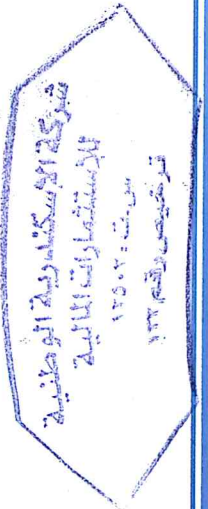 شركة الاسكندرية الوطنية
للاستثمارات المالية
س.ت : ١٢٥٠٢
ترخيص رقم ١٣٣